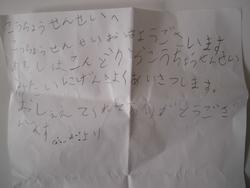 こうちょうせんせいへ
こうちょうせんせいおはようございます
わたしはこんどからこうちょうせんせい
みたいにげんきよくあいさつします。
おしえてくれてありがとうござ
います
より